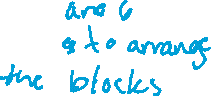 are 6
to arrange
the blocks